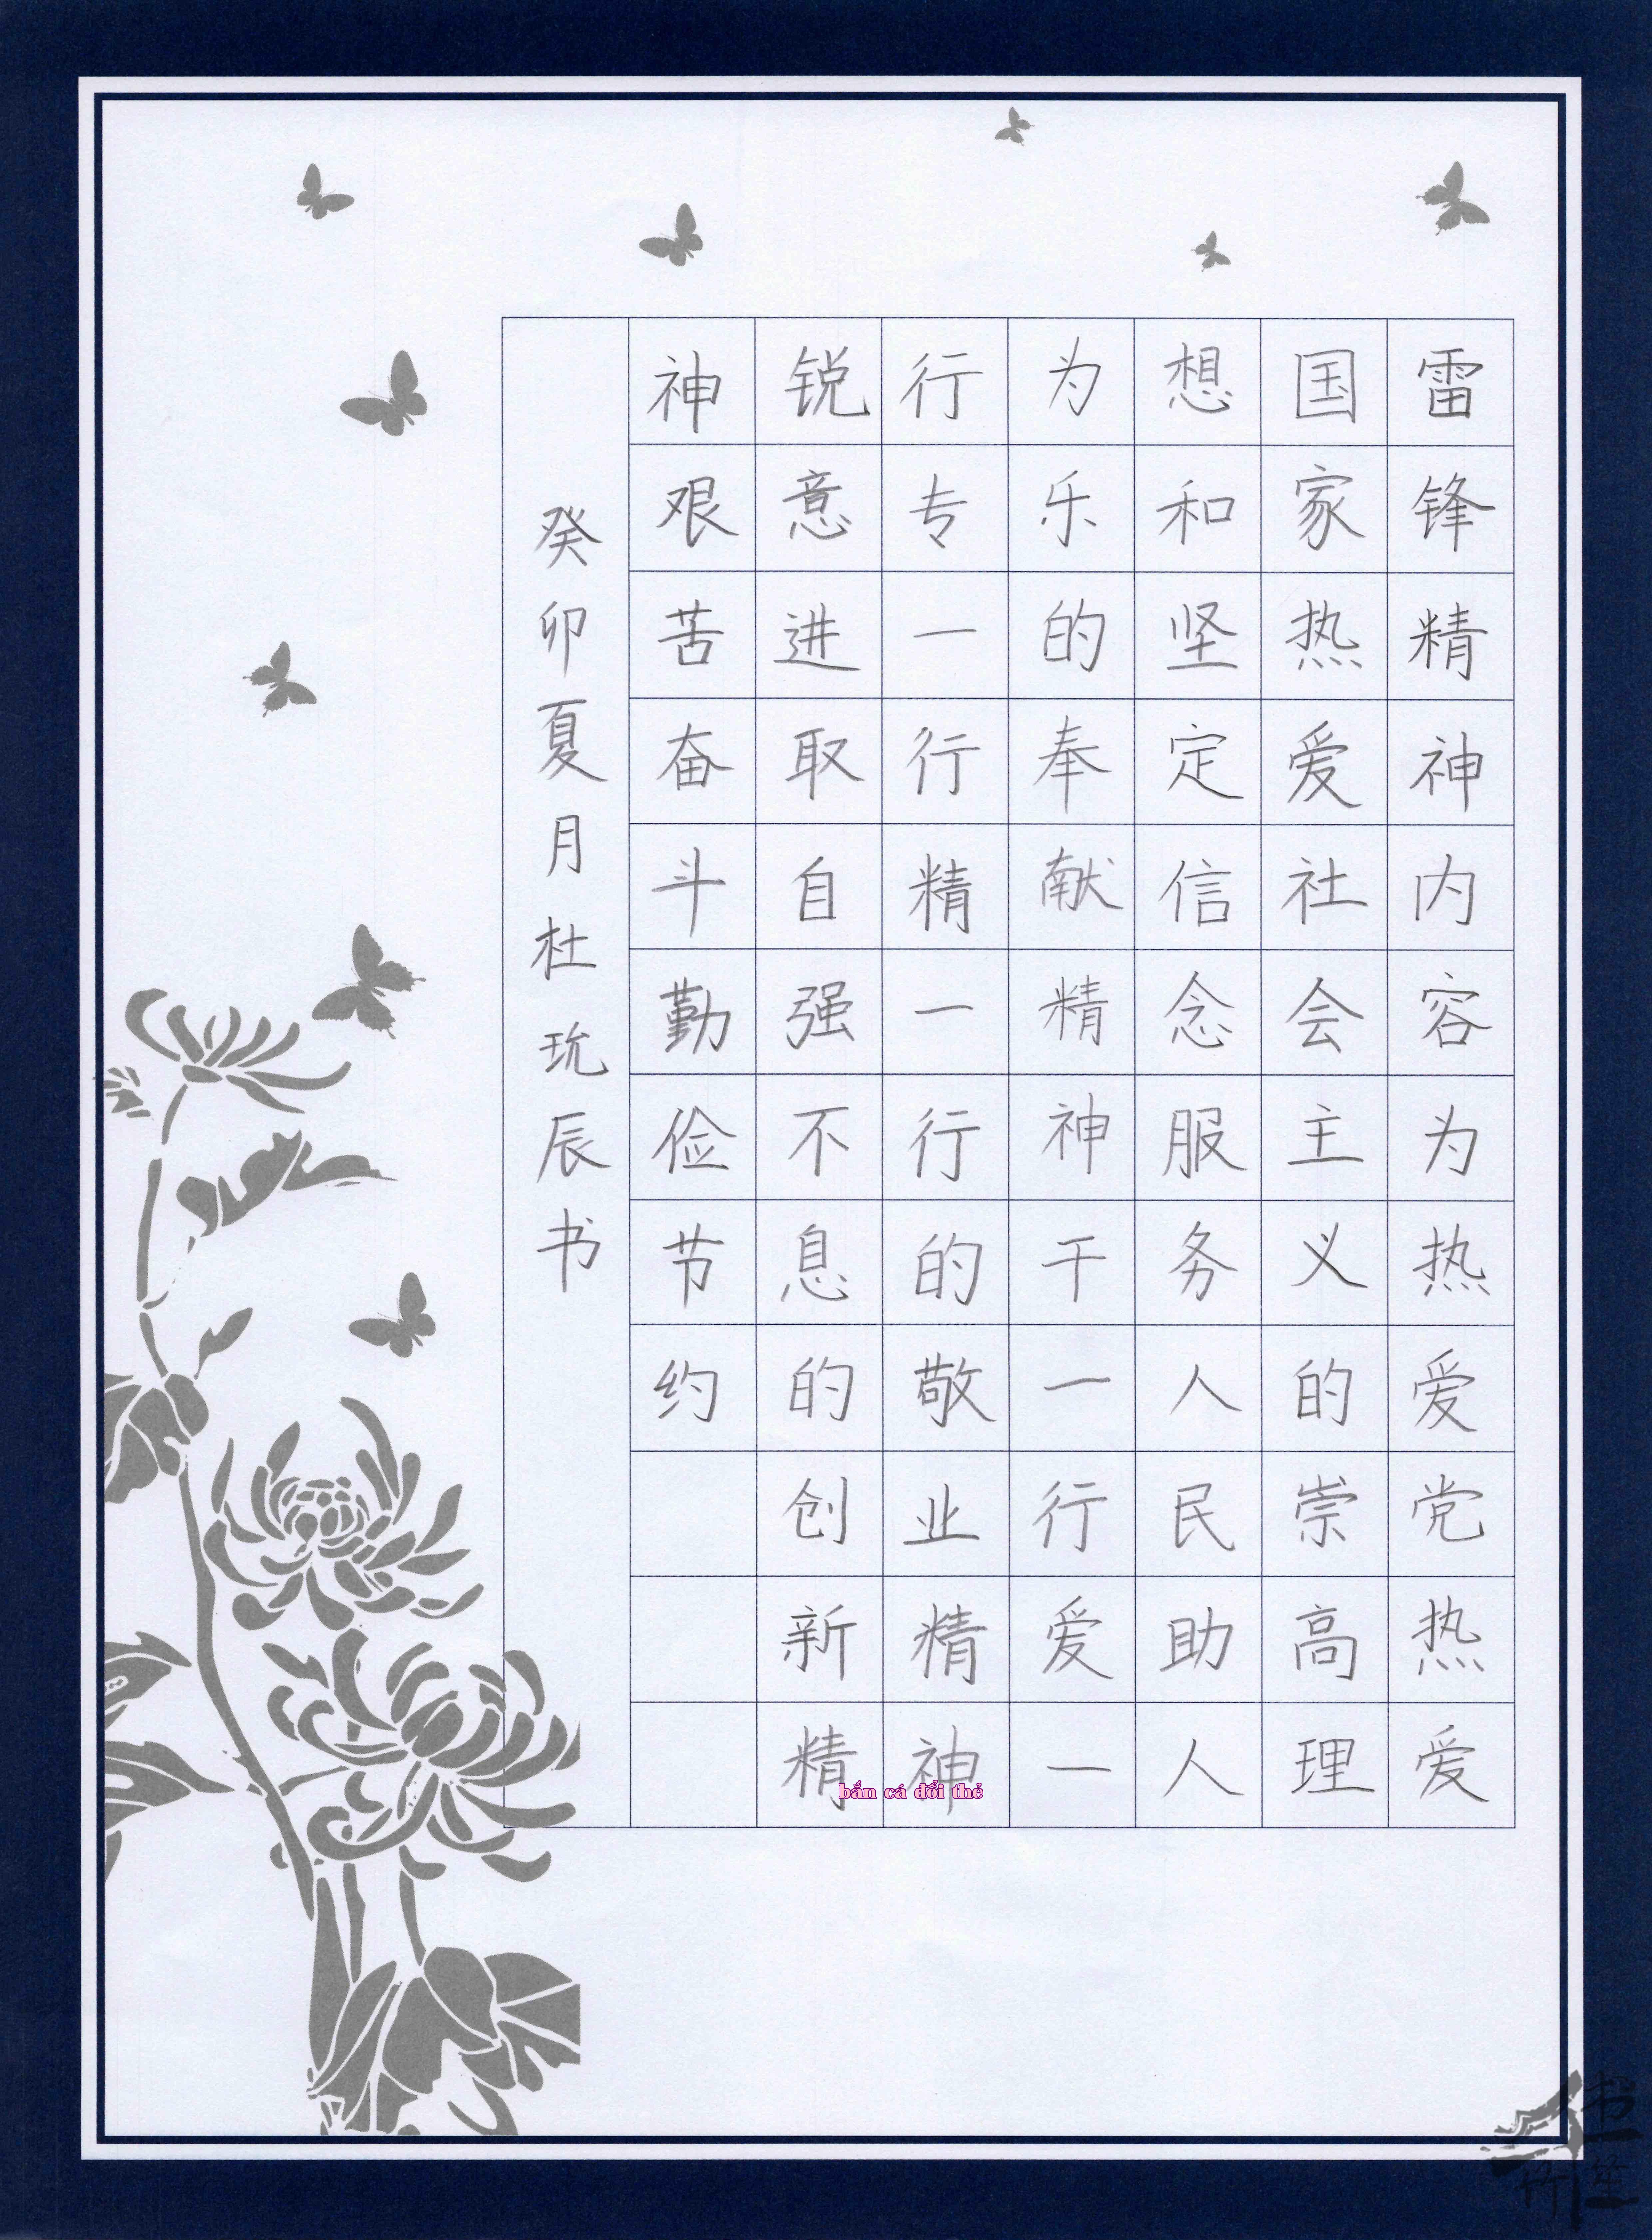 雷锋精神内容为热爱党热爱
国家热爱社会主义的崇高理
想和坚定信念服务人民助人
为乐的奉献精神干一行爱一
行专一行精一行的敬业精神
锐意进取自强不息的创新精
神艰苦奋斗勤俭节约
癸卯夏月杜玧辰书
bắn cá đổi thẻ